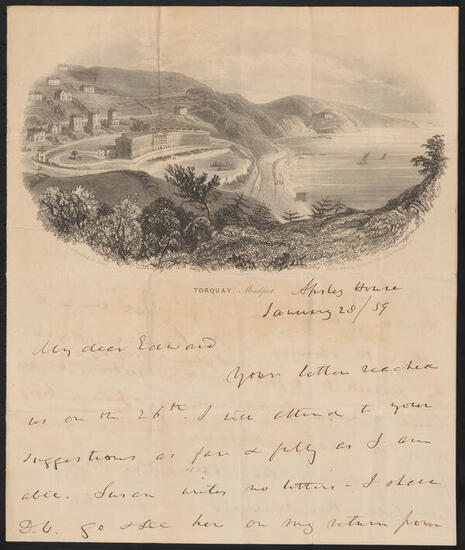 TORQUAY, Meadfoot.
Apsley House
January 28/59
My dear Edward
Your letter reached
us on the 26th. I will attend to your
suggestions as far & fully as I am
able. Susan writes no letters - I shall
D.V. go & see her on my return from